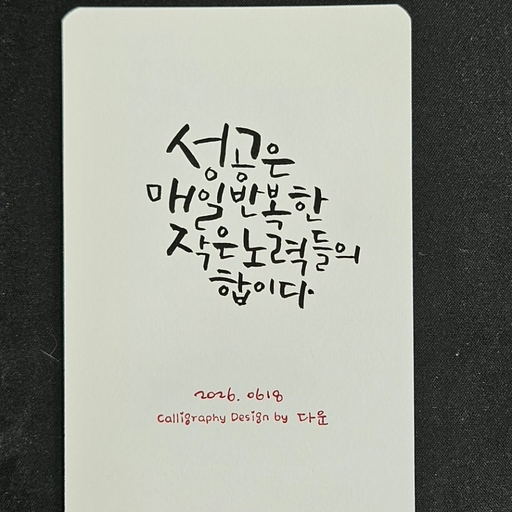 성공은
매일반복한
작은노력들의
합이다.
2026. 0618
Calligraphy Design by 다운